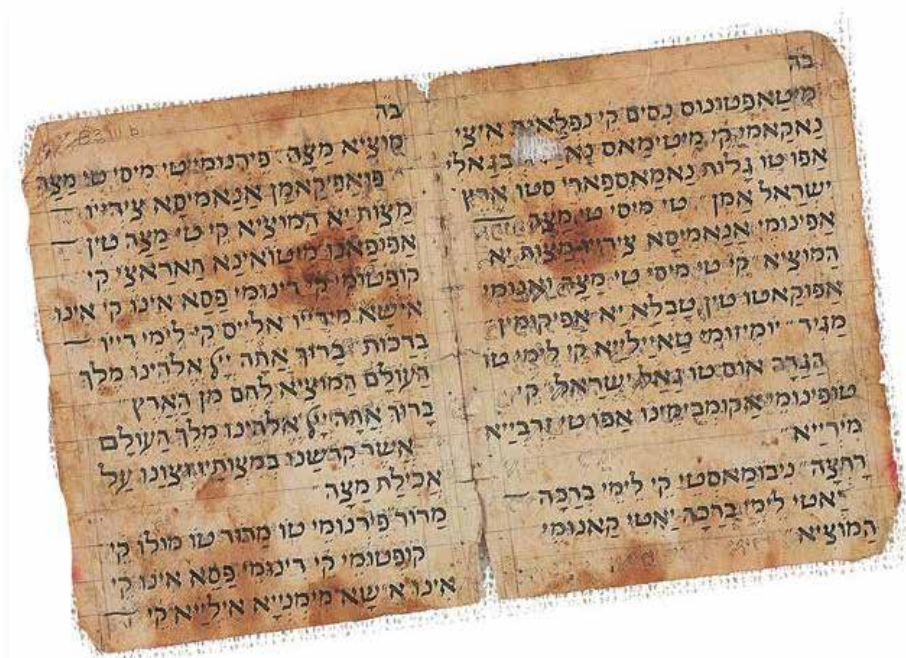 בה
מיטאפטונוס נסים קי נפלאות איצי
נאקאמן קי מיטימאס בגאלי
אפוטו גלות נאמאספארי סטו ארץ
ישראל אמן טי מיסי טי מצה —
אפינומי אנאמיסא צירייו מצות יא
המוציא קי טי מיסי טי מצה ואנומי
אפוקאטו טין טבלא יא אפיקומין
מגיד יומיזומי טאיילייא קי לימי טו
הגדה אוס טו גאל ישראל קי
טופינומי אקומבימינו אפוטי זרבייא
מירייא
רחצה ניבומאסטי קי לימי ברכה —
יאטי לימי ברכה יאטי קאנומי
המוציא
בה
מוציא מצה פירנומי טי מיסי טי מצה
פואפיקאמן אנאמיסא צירייו —
מצות יא המוציא קי טי מצה טין —
אפופאנו מיטואינא חאראצי קי
קופטומי קי דינומי פסא אינו קי אינו
אישא מידייו אלייס קי לימי דייו —
ברכות ברוך אתה ייי אלהינו מלך
העולם המוציא לחם מן הארץ
ברוך אתה ייי אלהינו מלך העולם
אשר קדשנו במצותיו וצונו על
אכילת מצה
מרור פירנומי טו מרור טו מולו קי
קופטומי קי דינומי פסא אינו קי
אינו אישא מימנייא אילייא קי —